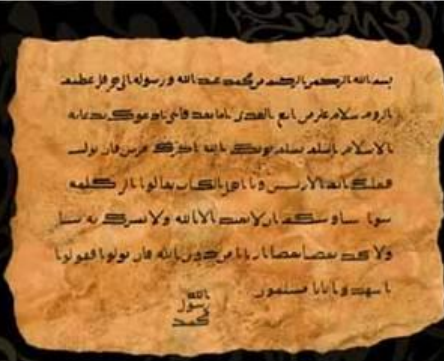 بسم الله الرحمن الرحيم من محمد عبد الله ورسوله الى هرقل عظيم
الروم سلام على من اتبع الهدى اما بعد فاني ادعوك بدعاية
الاسلام اسلم تسلم يوتك الله اجرك مرتين فان توليت
فعليك اثم الاريسيين ويا اهل الكتاب تعالوا الى كلمة
سوا بيننا وبينكم ان لا نعبد الا الله ولا نشرك به شيا
ولا يتخذ بعضنا بعضا اربابا من دون الله فان تولوا فقولوا
اشهدوا بانا مسلمون
الله
رسول
محمد